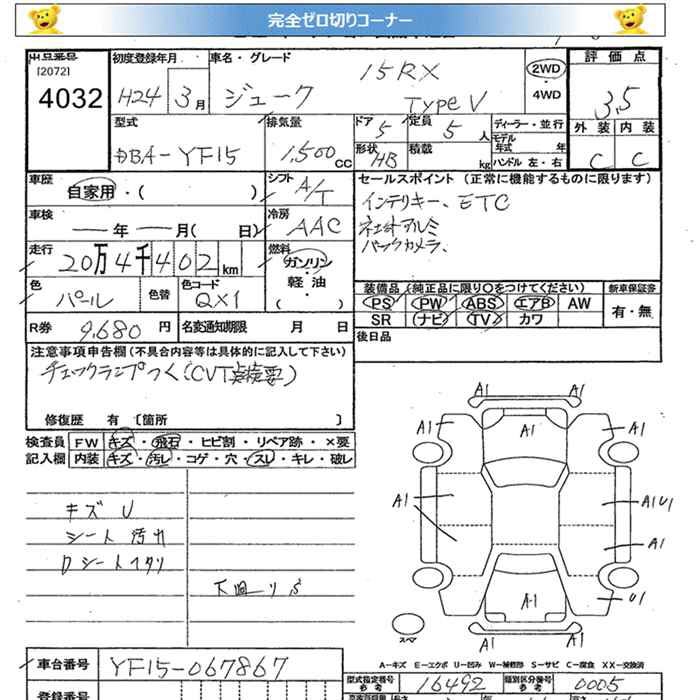 完全ゼロ切りコーナー
出品番号
[2072]
4032
初度登録年月
H24 3月
車名・グレード
ジューク 15RX TypeV
2WD
・4WD
評価点
3.5
外装 内装
C C
型式
DBA-YF15
排気量
1,500cc
ドア 5
定員 5人
形状 HB
積載 kg
ディーラー・並行
モデル年式 年
ハンドル 左・右
車歴
自家用・( )
シフト A/T
車検
― 年 ― 月( 日)
冷房 AAC
走行
20万4千402km
燃料
ガソリン
・軽油
・( )
色 パール
色替
色コード QX1
R券 9,680円
名変通知期限 月 日
セールスポイント (正常に機能するものに限ります)
インテリキー、ETC
社外アルミ
バックカメラ、
装備品 (純正品に限り○をつけてください)
PS PW ABS エアB AW
SR ナビ TV カワ
新車保証券
有・無
後日品
注意事項申告欄(不具合内容等は具体的に記入して下さい)
チェックランプつく(CVT点検要)
修復歴 有 〔箇所 〕
検査員記入欄
FW キズ・飛石・ヒビ割・リペア跡・×要
内装 キズ・汚レ・コゲ・穴・スレ・キレ・破レ
キズ U
シート 汚れ
Dシートヘタリ
下回り S
A1 A1
A1 A1 A1
A1 AU1
A1
A1 U1
A1 A1
スペア
A-キズ E-エクボ U-凹み W-補修跡 S-サビ C-腐食 XX-交換済
車台番号 YF15-067867
型式指定番号 参考 16492
類別区分番号 参考 0005
登録番号